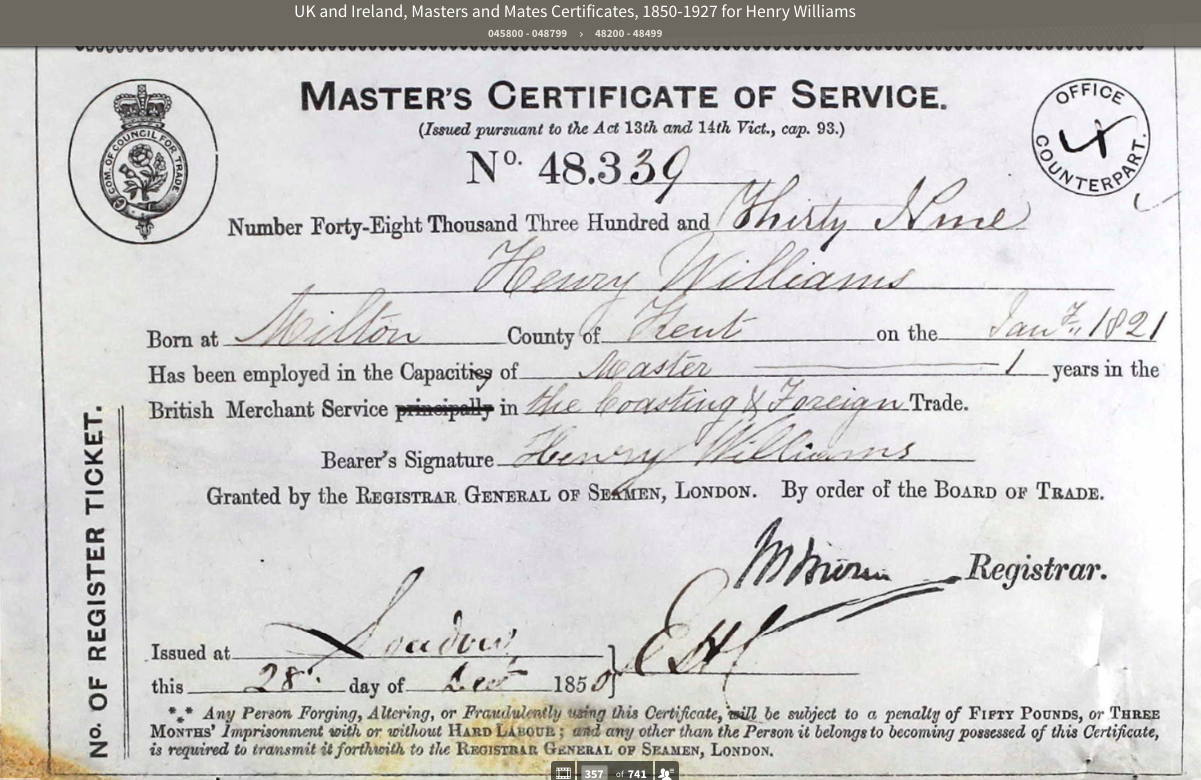 UK and Ireland, Masters and Mates Certificates, 1850-1927 for Henry Williams
045800 - 048799 › 48200 - 48499
MASTER'S CERTIFICATE OF SERVICE.
(Issued pursuant to the Act 13th and 14th Vict., cap. 93.)
COM. OF COUNCIL FOR TRADE
OFFICE
COUNTERPART.
No. 48.339
Number Forty-Eight Thousand Three Hundred and Thirty Nine
Henry Williams
Born at Milton County of Kent on the Jany. 1821
Has been employed in the Capacity of Master 1 years in the
British Merchant Service principally in the Coasting & Foreign Trade.
Bearer's Signature Henry Williams
Granted by the REGISTRAR GENERAL OF SEAMEN, LONDON. By order of the BOARD OF TRADE.
Registrar.
Issued at London
this 28 day of Decr 1850
No. OF REGISTER TICKET.
*** Any Person Forging, Altering, or Fraudulently using this Certificate, will be subject to a penalty of FIFTY POUNDS, or THREE
MONTHS' Imprisonment with or without HARD LABOUR; and any other than the Person it belongs to becoming possessed of this Certificate,
is required to transmit it forthwith to the REGISTRAR GENERAL OF SEAMEN, LONDON.
357 of 741